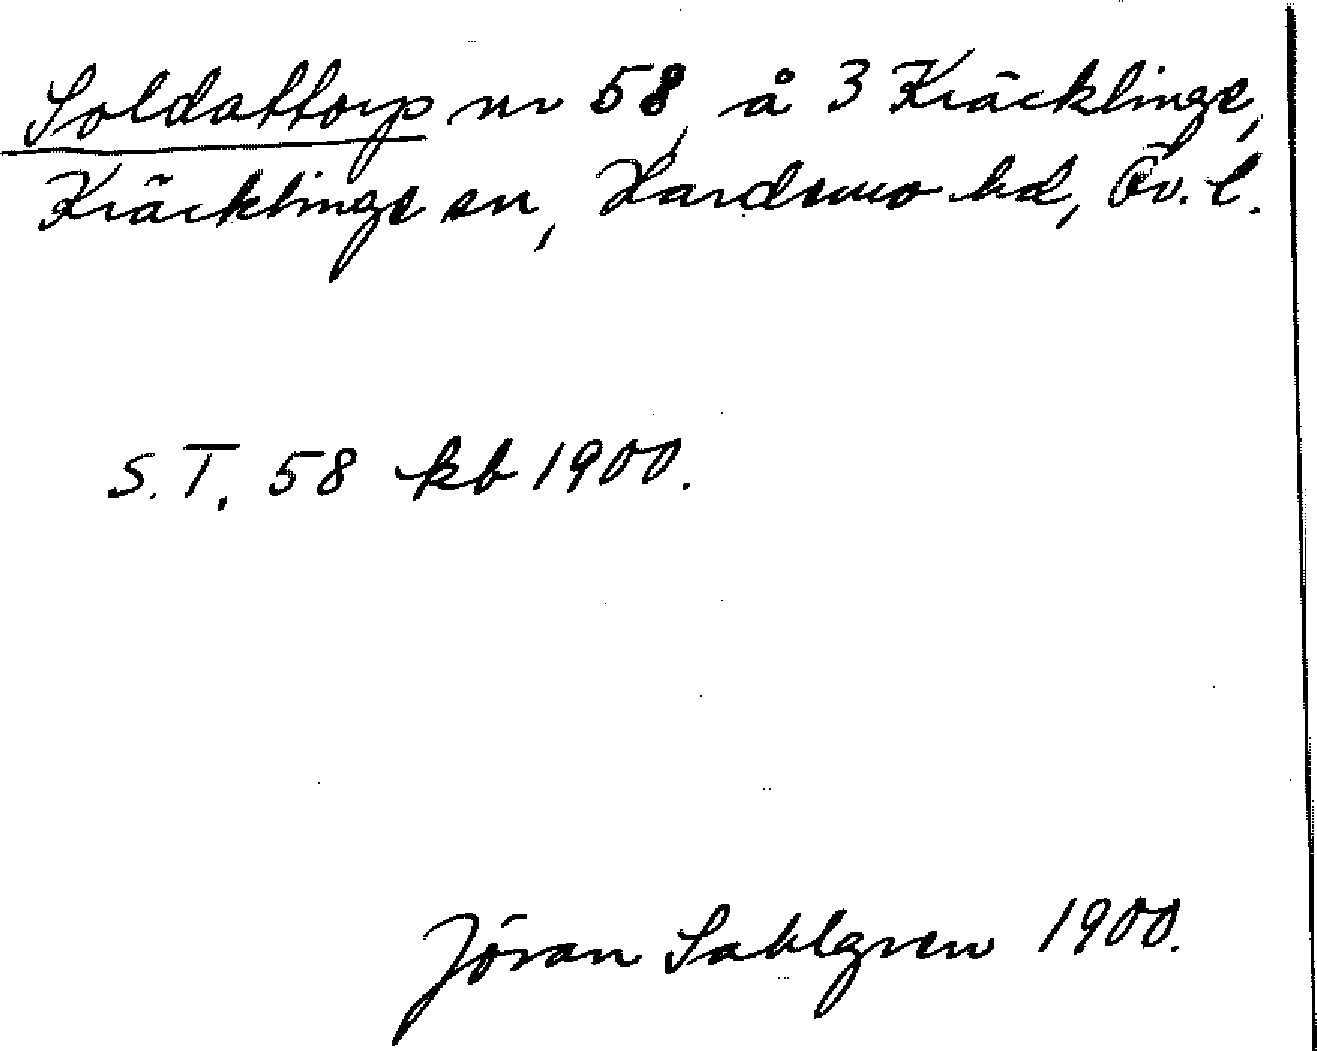 Soldattorp nr 58, å 3 Kräcklinge,
Kräcklinge sn, Hardemo hd, Öv. l.
S. T. 58 kb 1900.
Jöran Sahlgren 1900.